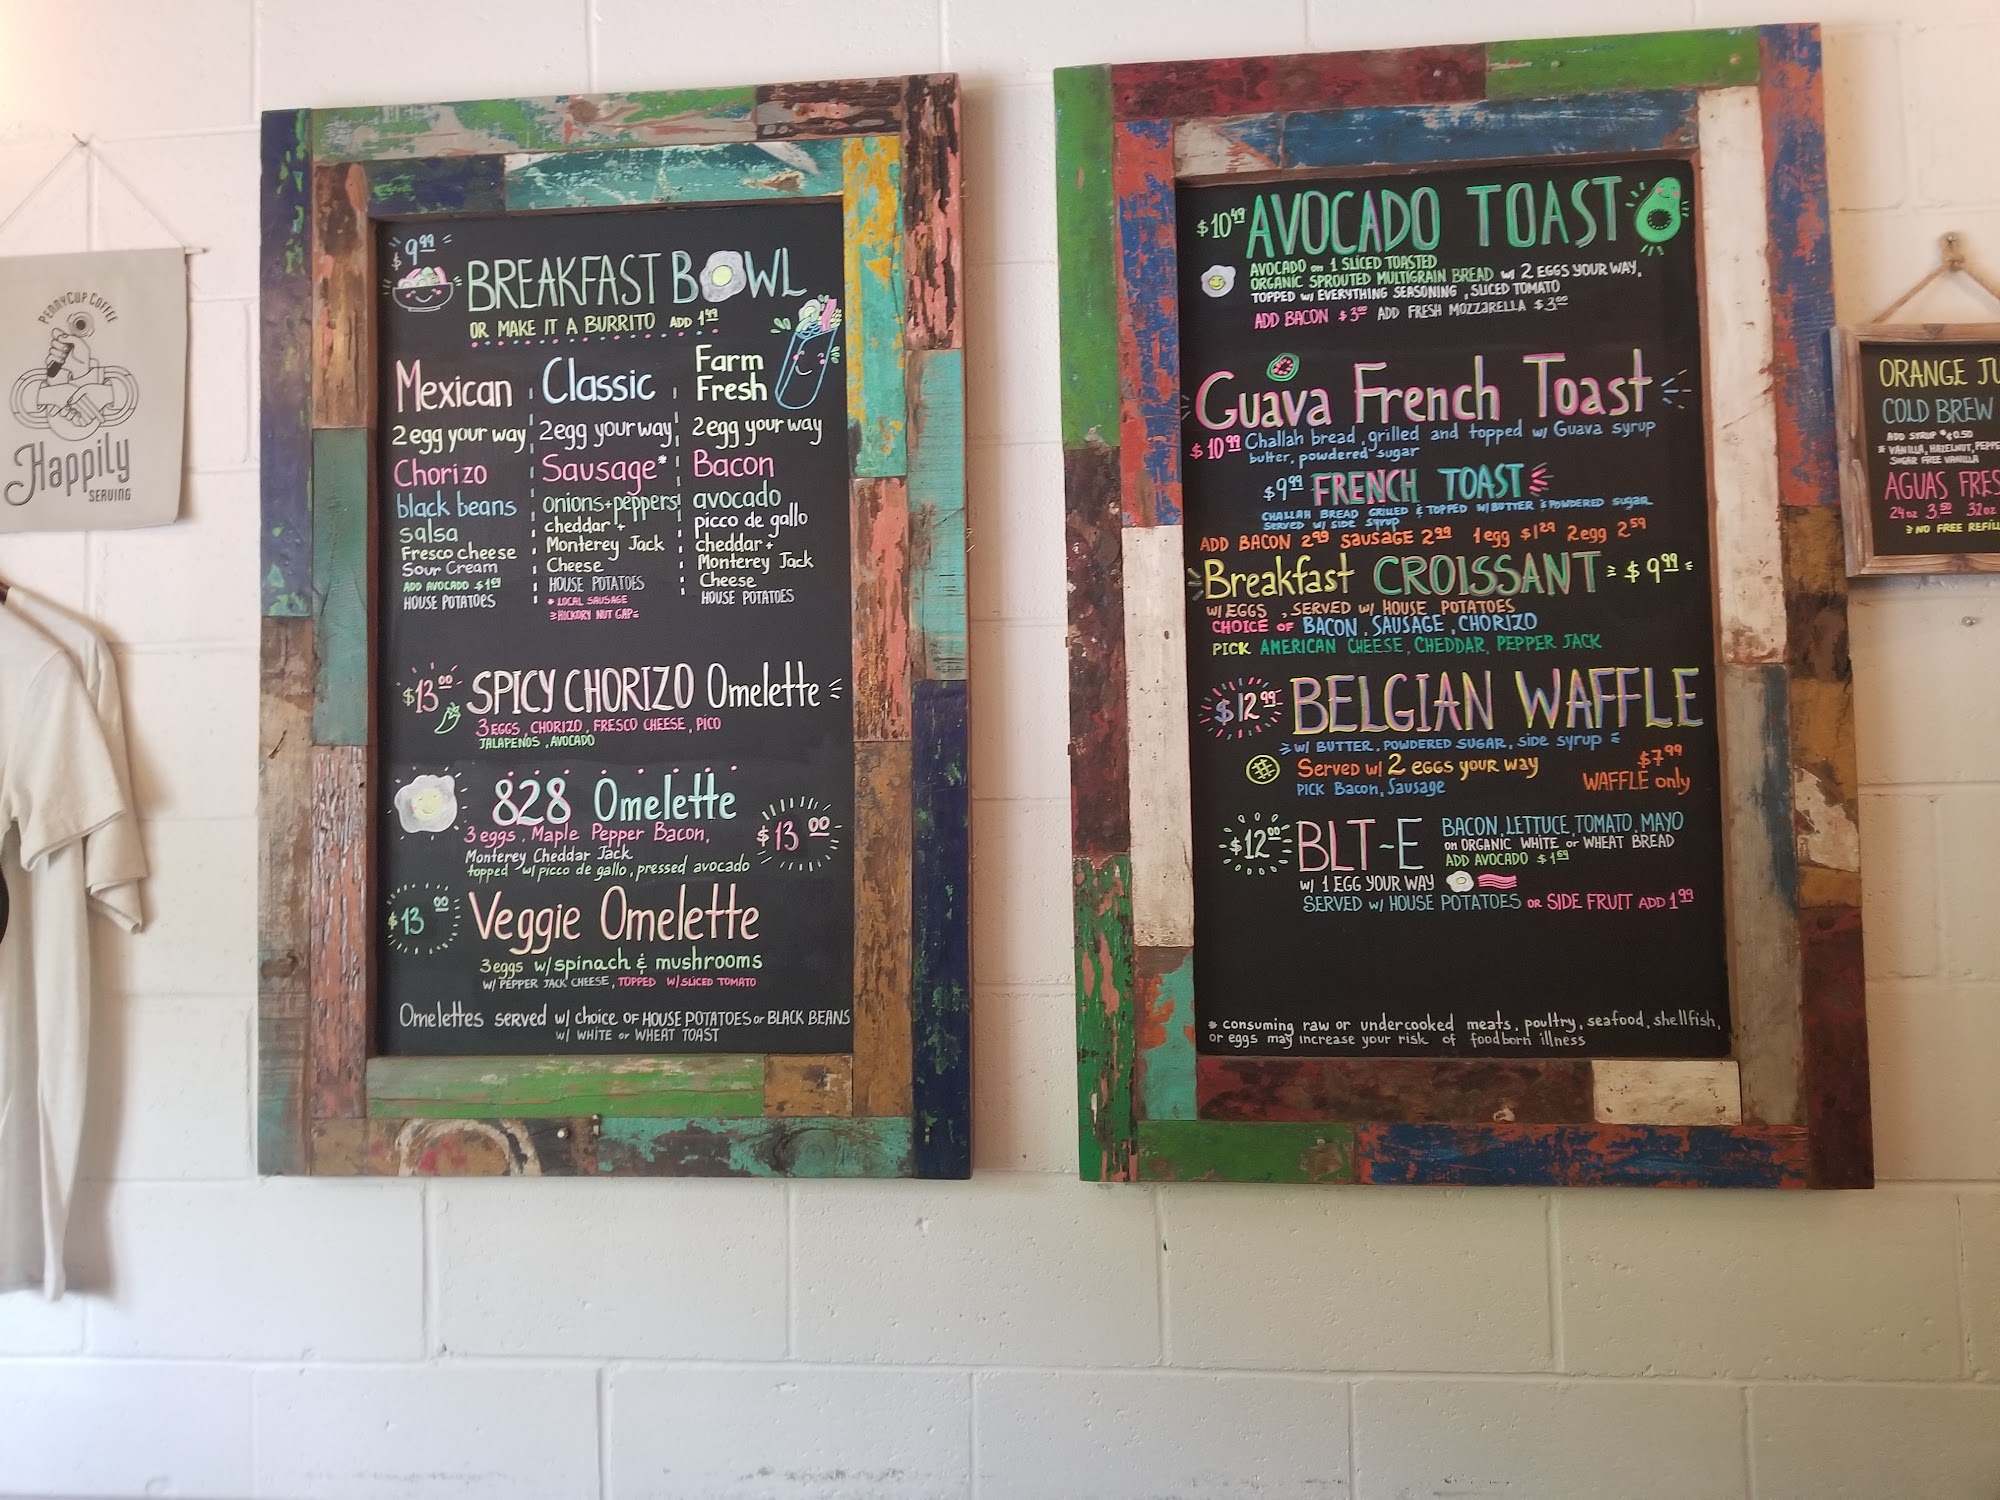 PENNYCUP COFFEE
Happily
SERVING
$9.99
BREAKFAST BOWL
OR MAKE IT A BURRITO ADD 1.49
Mexican
2 egg your way
Chorizo
black beans
salsa
Fresco cheese
Sour Cream
ADD AVOCADO $1.69
HOUSE POTATOES
Classic
2egg your way
Sausage*
onions+peppers
cheddar +
Monterey Jack
Cheese
HOUSE POTATOES
* LOCAL SAUSAGE
HICKORY NUT GAP
Farm
Fresh
2egg your way
Bacon
avocado
picco de gallo
cheddar +
Monterey Jack
Cheese
HOUSE POTATOES
$13.00 SPICY CHORIZO Omelette
3 EGGS, CHORIZO, FRESCO CHEESE, PICO
JALAPENOS, AVOCADO
828 Omelette
3 eggs, Maple Pepper Bacon,
Monterey Cheddar Jack
topped w/ picco de gallo, pressed avocado
$13.00
$13.00 Veggie Omelette
3eggs w/ spinach & mushrooms
W/ PEPPER JACK CHEESE, TOPPED W/ SLICED TOMATO
Omelettes SERVED w/ choice OF HOUSE POTATOES or BLACK BEANS
w/ WHITE or WHEAT TOAST
$10.49 AVOCADO TOAST
AVOCADO on 1 SLICED TOASTED
ORGANIC SPROUTED MULTIGRAIN BREAD w/ 2 EGGS YOUR WAY,
TOPPED w/ EVERYTHING SEASONING, SLICED TOMATO
ADD BACON $3.00 ADD FRESH MOZZARELLA $3.00
Guava French Toast
$10.99 Challah bread, grilled and topped w/ Guava syrup
butter, powdered sugar
$9.99 FRENCH TOAST
CHALLAH BREAD GRILLED & TOPPED W/ BUTTER & POWDERED SUGAR
SERVED W/ SIDE SYRUP
ADD BACON 2.99 SAUSAGE 2.99 1egg $1.29 2egg 2.59
Breakfast CROISSANT $9.99
W/ EGGS, SERVED W/ HOUSE POTATOES
CHOICE OF BACON, SAUSAGE, CHORIZO
PICK AMERICAN CHEESE, CHEDDAR, PEPPER JACK
$12.99 BELGIAN WAFFLE
W/ BUTTER, POWDERED SUGAR, side syrup
Served w/ 2 eggs your way
PICK Bacon, Sausage
$7.99
WAFFLE only
$12.00 BLT-E
BACON, LETTUCE, TOMATO, MAYO
on ORGANIC WHITE or WHEAT BREAD
ADD AVOCADO $1.69
w/ 1 EGG YOUR WAY
SERVED w/ HOUSE POTATOES OR SIDE FRUIT ADD 1.99
* consuming raw or undercooked meats, poultry, seafood, shellfish,
or eggs may increase your risk of foodborn illness
ORANGE JU
COLD BREW
ADD SYRUP
* VANILLA, HAZELNUT, PEPPE
SUGAR FREE VANILLA
AGUAS FRES
24oz 3.50 32oz
NO FREE REFILL